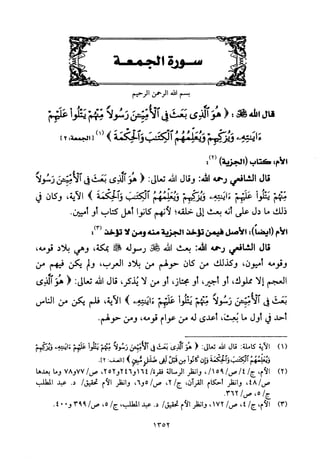 سورة الجمعة
بسم الله الرحمن الرحيم
قال الله ﷺ: ﴿ هُوَ ٱلَّذِى بَعَثَ فِى ٱلْأُمِّيِّـۧنَ رَسُولاً مِّنْهُمْ يَتْلُوا۟ عَلَيْهِمْ
ءَايَـٰتِهِۦ وَيُزَكِّيهِمْ وَيُعَلِّمُهُمُ ٱلْكِتَـٰبَ وَٱلْحِكْمَةَ ﴾ (١) [الجمعة: ٢]
الأم، كتاب (الجزية) (٢):
قال الشافعي رحمه الله: وقال الله تعالى: ﴿ هُوَ ٱلَّذِى بَعَثَ فِى ٱلْأُمِّيِّـۧنَ رَسُولاً
مِّنْهُمْ يَتْلُوا۟ عَلَيْهِمْ ءَايَـٰتِهِۦ وَيُزَكِّيهِمْ وَيُعَلِّمُهُمُ ٱلْكِتَـٰبَ وَٱلْحِكْمَةَ ﴾ الآية، وكان في
ذلك ما دل على أنه بعث إلى خلقه؛ لأنهم كانوا أهل كتاب أو أميين.
الأم (أيضاً)، الأصل فيمن تؤخذ الجزية منه ومن لا تؤخذ (٣):
قال الشافعي رحمه الله: بعث الله ﷺ رسوله ﷺ بمكة، وهي بلاد قومه،
وقومه أميون، وكذلك من كان حولهم من بلاد العرب، ولم يكن فيهم من
العجم إلا مملوك، أو أجير، أو مجتاز، أو من لا يُذكر، قال الله تعالى: ﴿ هُوَ ٱلَّذِى
بَعَثَ فِى ٱلْأُمِّيِّـۧنَ رَسُولاً مِّنْهُمْ يَتْلُوا۟ عَلَيْهِمْ ءَايَـٰتِهِۦ ﴾ الآية، فلم يكن من الناس
أحد في أول ما بُعث، أعدى له من عوام قومه، ومن حولهم.
(١) الآية كاملة: قال الله تعالى: ﴿ هُوَ ٱلَّذِى بَعَثَ فِى ٱلْأُمِّيِّـۧنَ رَسُولاً مِّنْهُمْ يَتْلُوا۟ عَلَيْهِمْ ءَايَـٰتِهِۦ وَيُزَكِّيهِمْ
وَيُعَلِّمُهُمُ ٱلْكِتَـٰبَ وَٱلْحِكْمَةَ وَإِن كَانُوا۟ مِن قَبْلُ لَفِى ضَلَـٰلٍ مُّبِينٍ ﴾ [الصف: ٢].
(٢) الأم، ج/٤ ص/١٥٩، وانظر الرسالة فقرة/١٦٤ و٢٤٦ و٢٥٢، ص/٧٧ و٧٨ وما بعدها
ص/٤٨، وانظر أحكام القرآن، ج/٢، ص/٥ و٦، وانظر الأم تحقيق/ د. عبد المطلب
ج/٥، ص/٣٦٢.
(٣) الأم، ج/٤، ص/١٧٢، وانظر الأم تحقيق/ د. عبد المطلب، ج/٥، ص/٣٩٩ و٤٠٠.
١٣٥٢